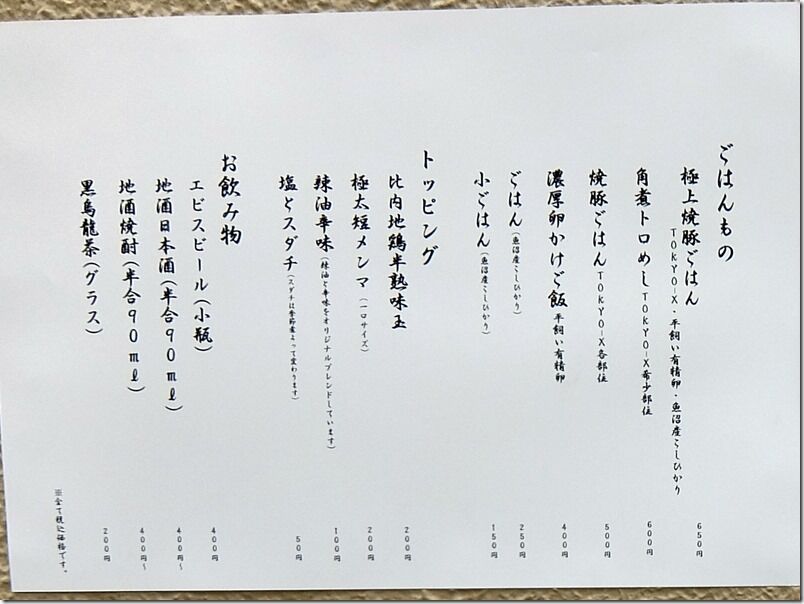 ごはんもの
極上焼豚ごはん
TOKYO-X・平飼い有精卵・魚沼産こしひかり
650円
角煮トロめし TOKYO-X希少部位
600円
焼豚ごはん TOKYO-X各部位
500円
濃厚卵かけご飯 平飼い有精卵
400円
ごはん(魚沼産こしひかり)
250円
小ごはん(魚沼産こしひかり)
150円
トッピング
比内地鶏半熟味玉
200円
極太短メンマ(一口サイズ)
200円
辣油辛味(辣油と辛味をオリジナルブレンドしています)
100円
塩とスダチ(スダチは季節産よって変わります)
50円
お飲み物
エビスビール(小瓶)
400円
地酒日本酒(半合90ml)
400円~
地酒焼酎(半合90ml)
400円~
黒烏龍茶(グラス)
200円
※全て税込価格です。